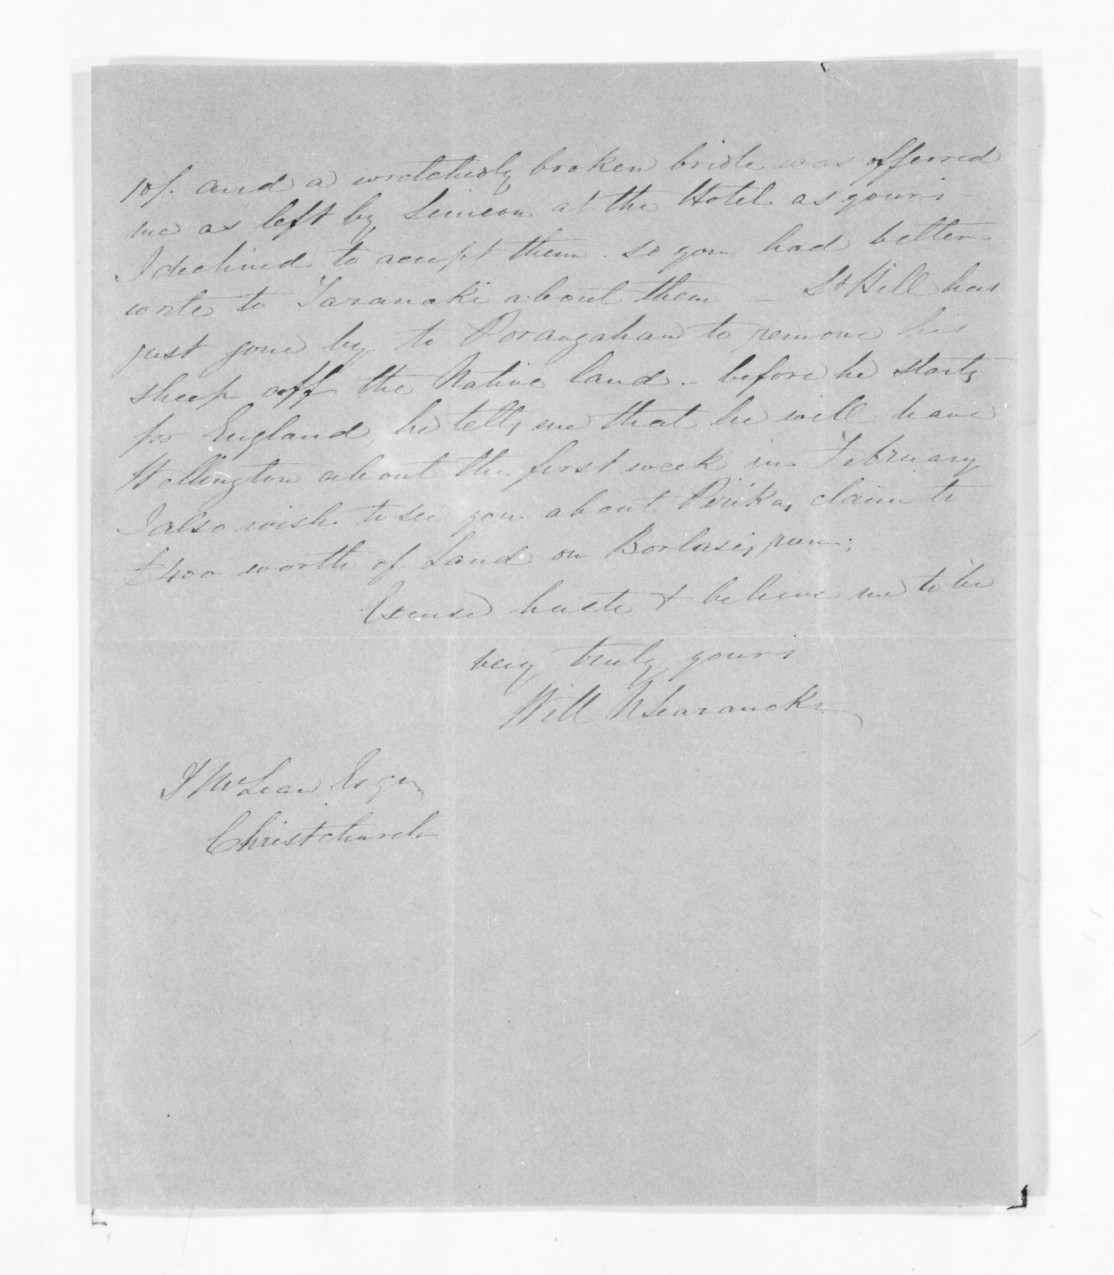 10/. and a wretchedly broken bridle was offerred
me as left by Simeon at the Hotel as yours
I declined to accept them. so you had better
write to Taranaki about them — St Hill has
just gone by to Porangahau to remove his
sheep off the Native land. before he starts
for England, he tells me that he will leave
Wellington about the first week in February
I also wish to see you about Pirika's claim to
£400 worth of Land on Borlase's run;
Excuse haste & believe me to be
very truly yours
Will N Searancke
D McLean Esqr
Christchurch